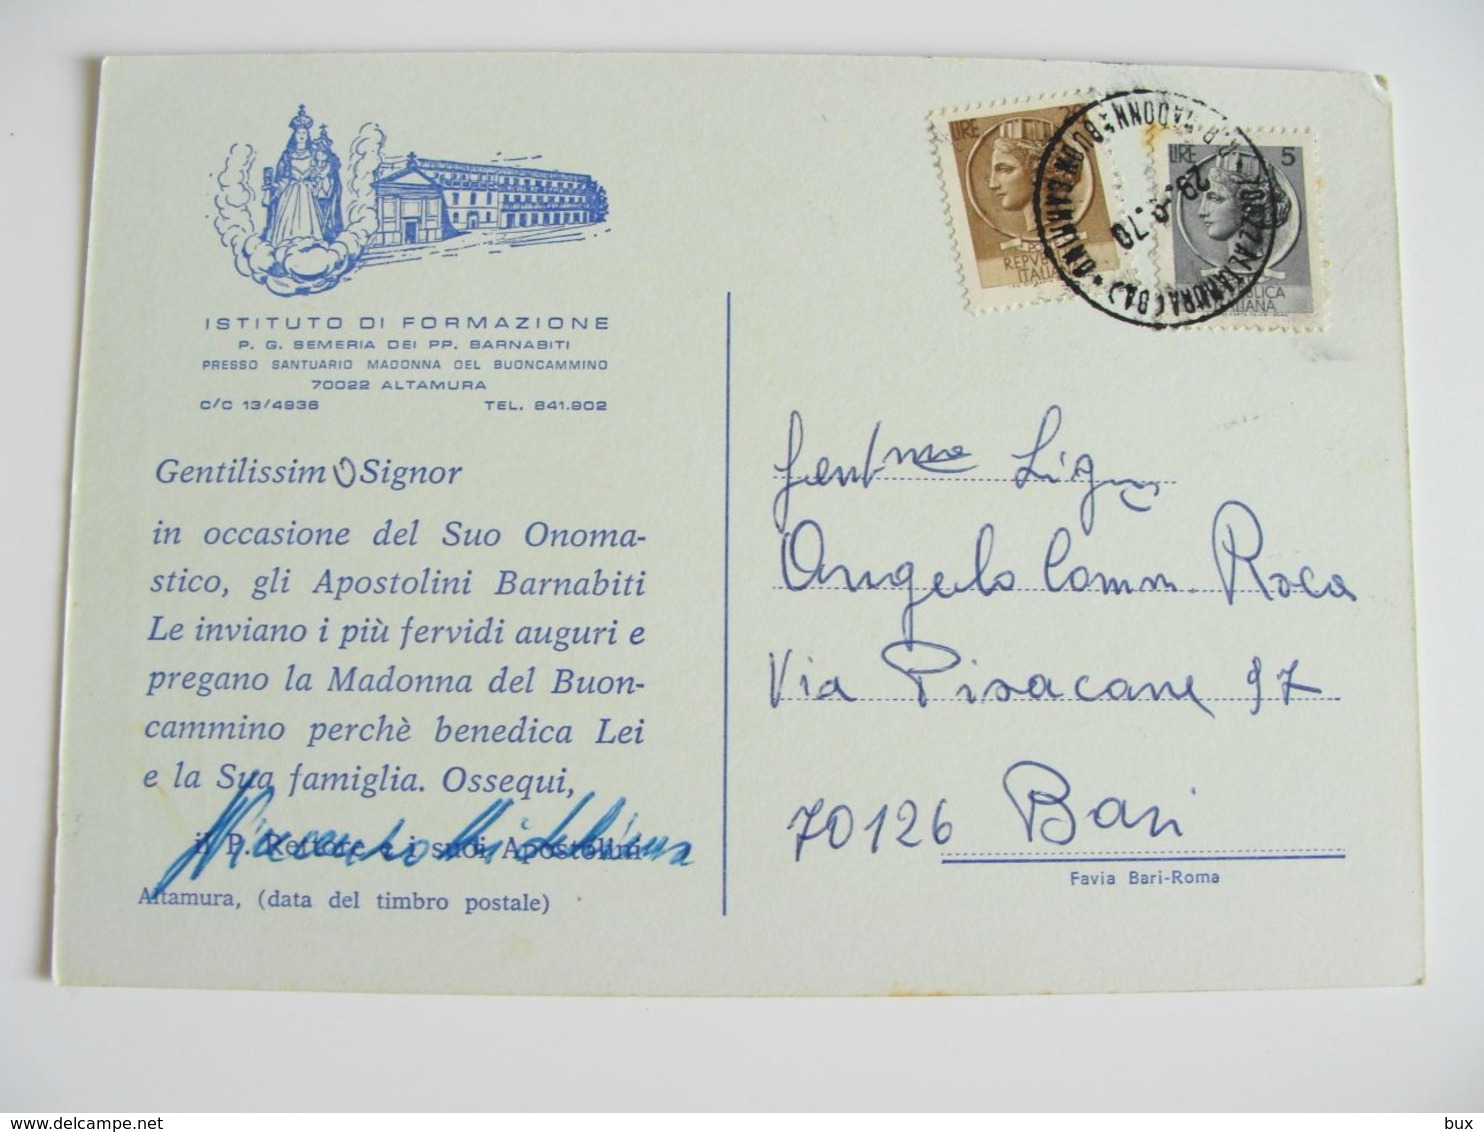 ISTITUTO DI FORMAZIONE
P. G. SEMERIA DEI PP. BARNABITI
PRESSO SANTUARIO MADONNA DEL BUONCAMMINO
70022 ALTAMURA
C/C 13/4936 TEL. 841.902
Gentilissimo Signor
in occasione del Suo Onoma-
stico, gli Apostolini Barnabiti
Le inviano i più fervidi auguri e
pregano la Madonna del Buon-
cammino perchè benedica Lei
e la Sua famiglia. Ossequi,
il P. Rettore e i suoi Apostolini
Altamura, (data del timbro postale)
LIRE
REPVBBLICA
ITALIANA
LIRE 5
ITALIANA
29.9.70
ALTAMURA (BA)
MADONNA BUON CAMMINO
Gent.mo Sig.
Angelo Comm. Roca
Via Pisacane 97
70126 Bari
Favia Bari-Roma
delcampe.net
bux